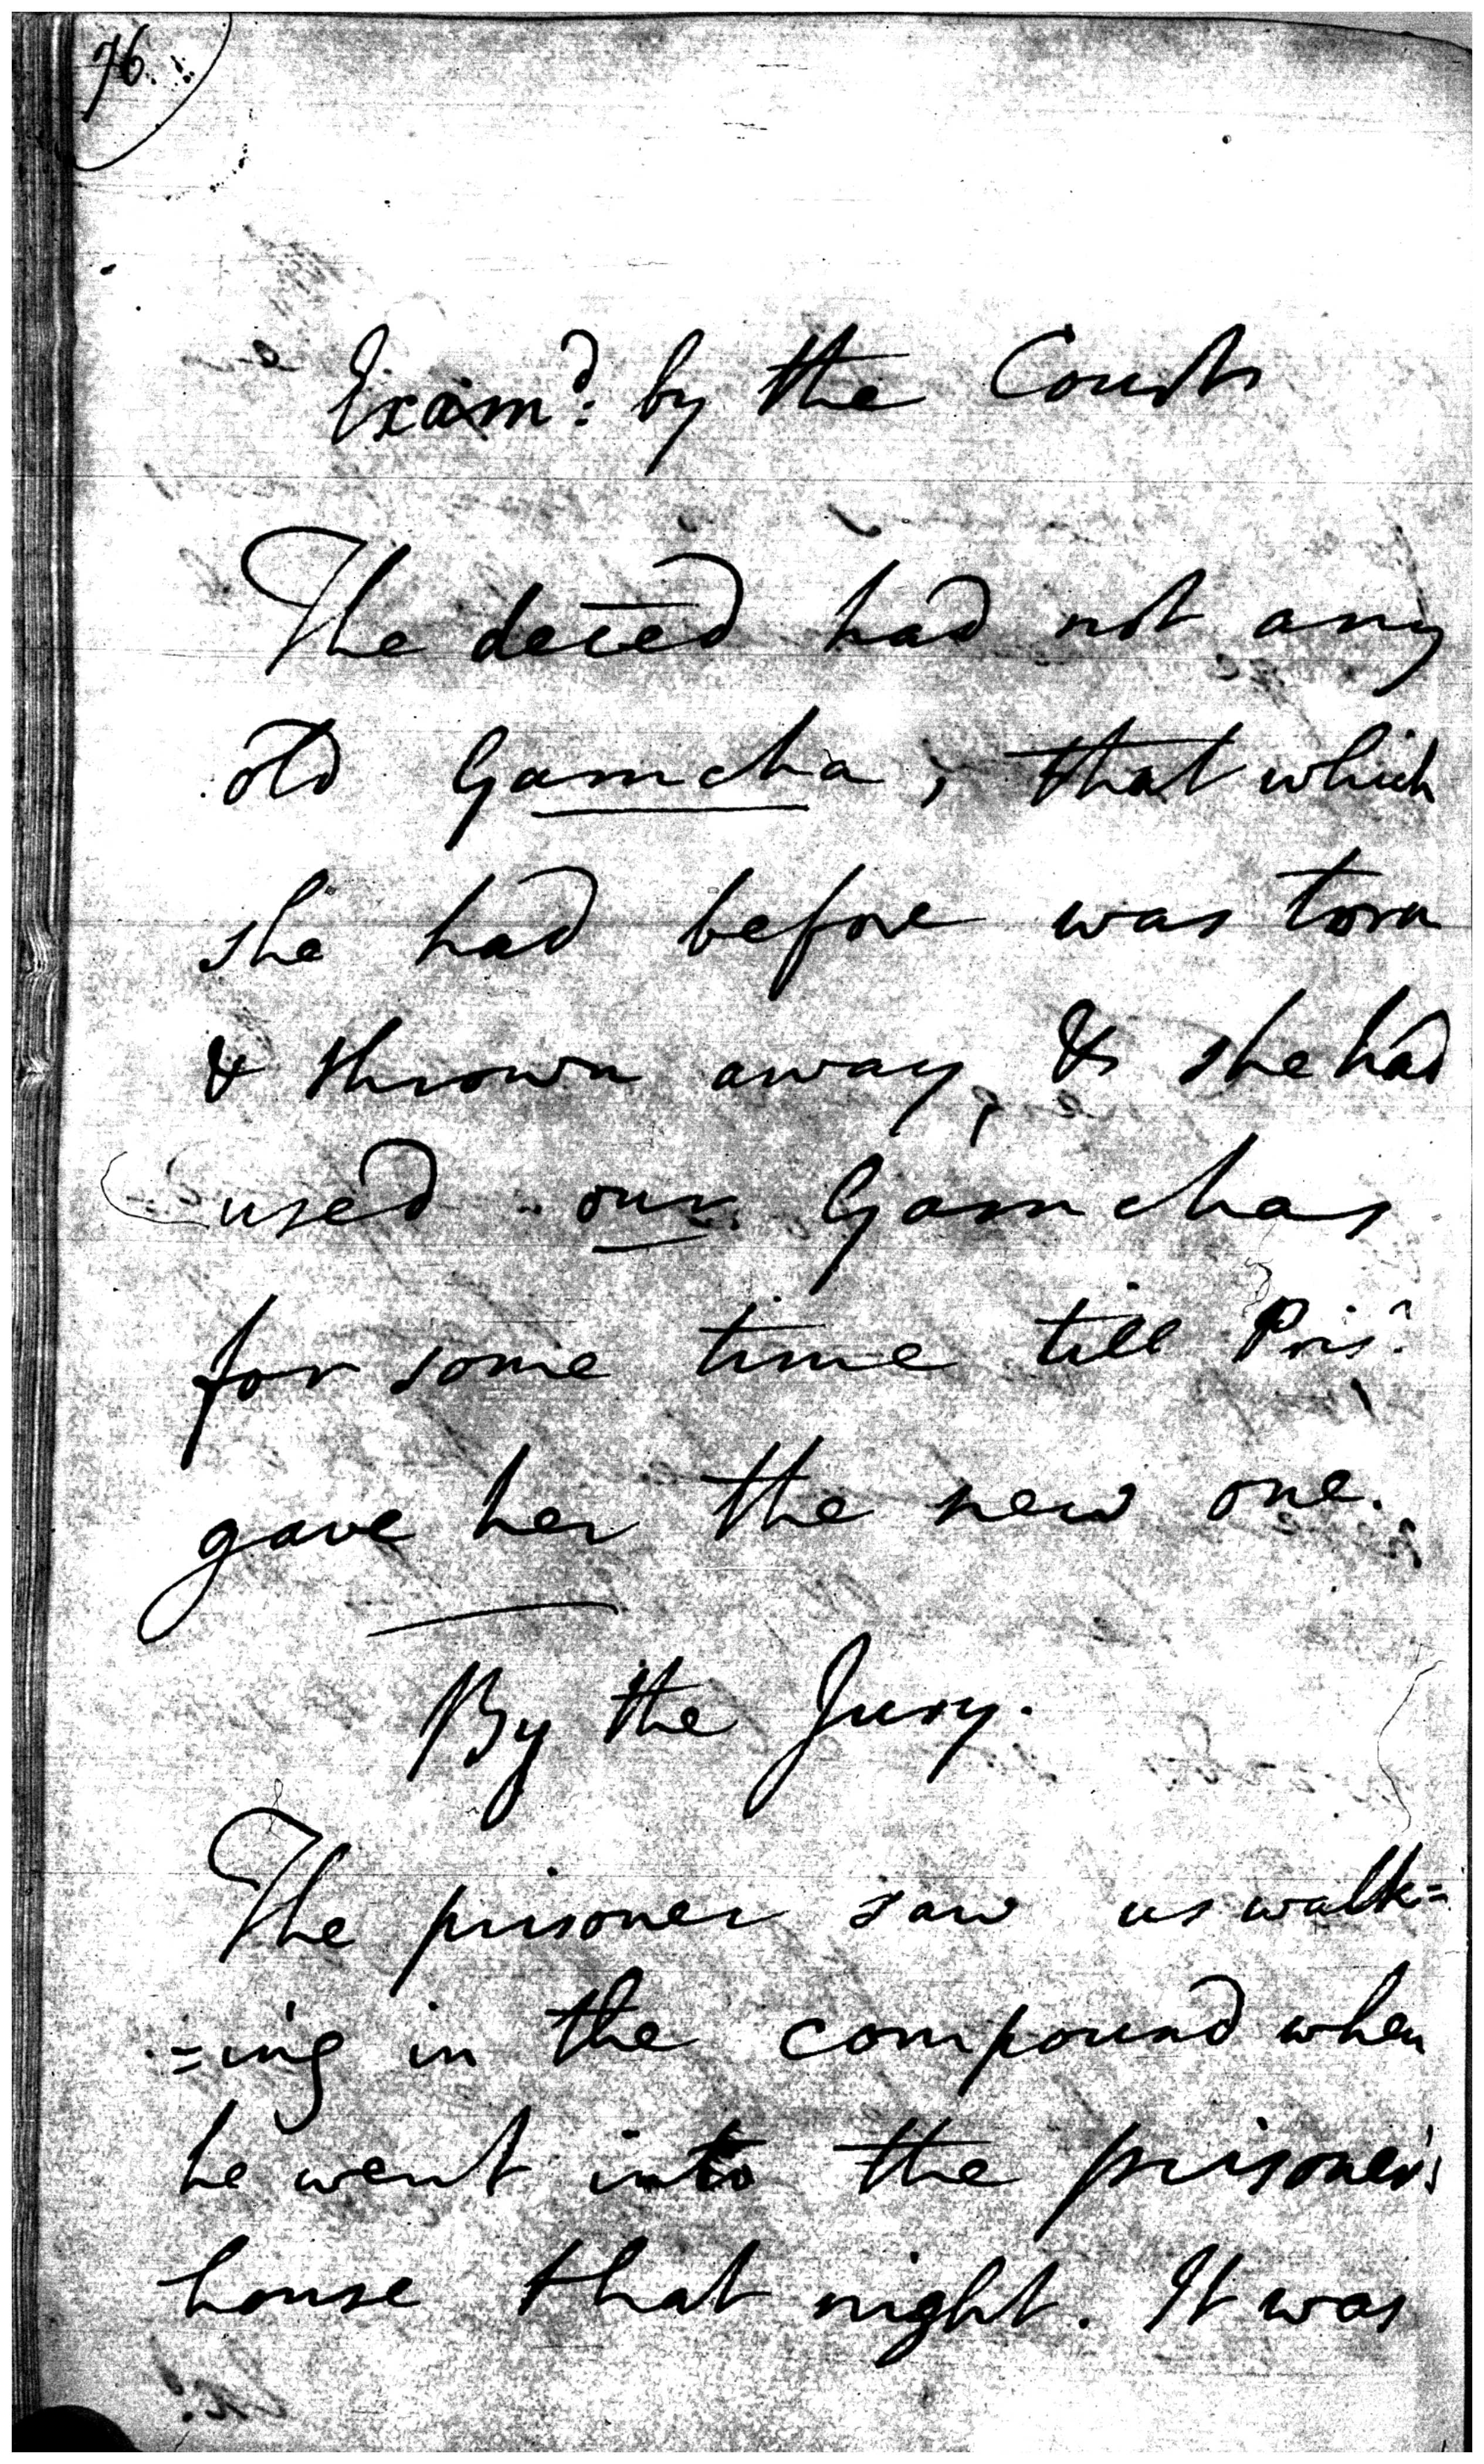 76
Examd: by the Court
The deced had not any
old Gamcha, that which
she had before was torn
& thrown away, & she had
used our Gamchas
for some time till Prisr
gave her the new one.
By the Jury.
The prisoner saw us walk=
=ing in the compound when
he went into the prisoner's
house that night. It was